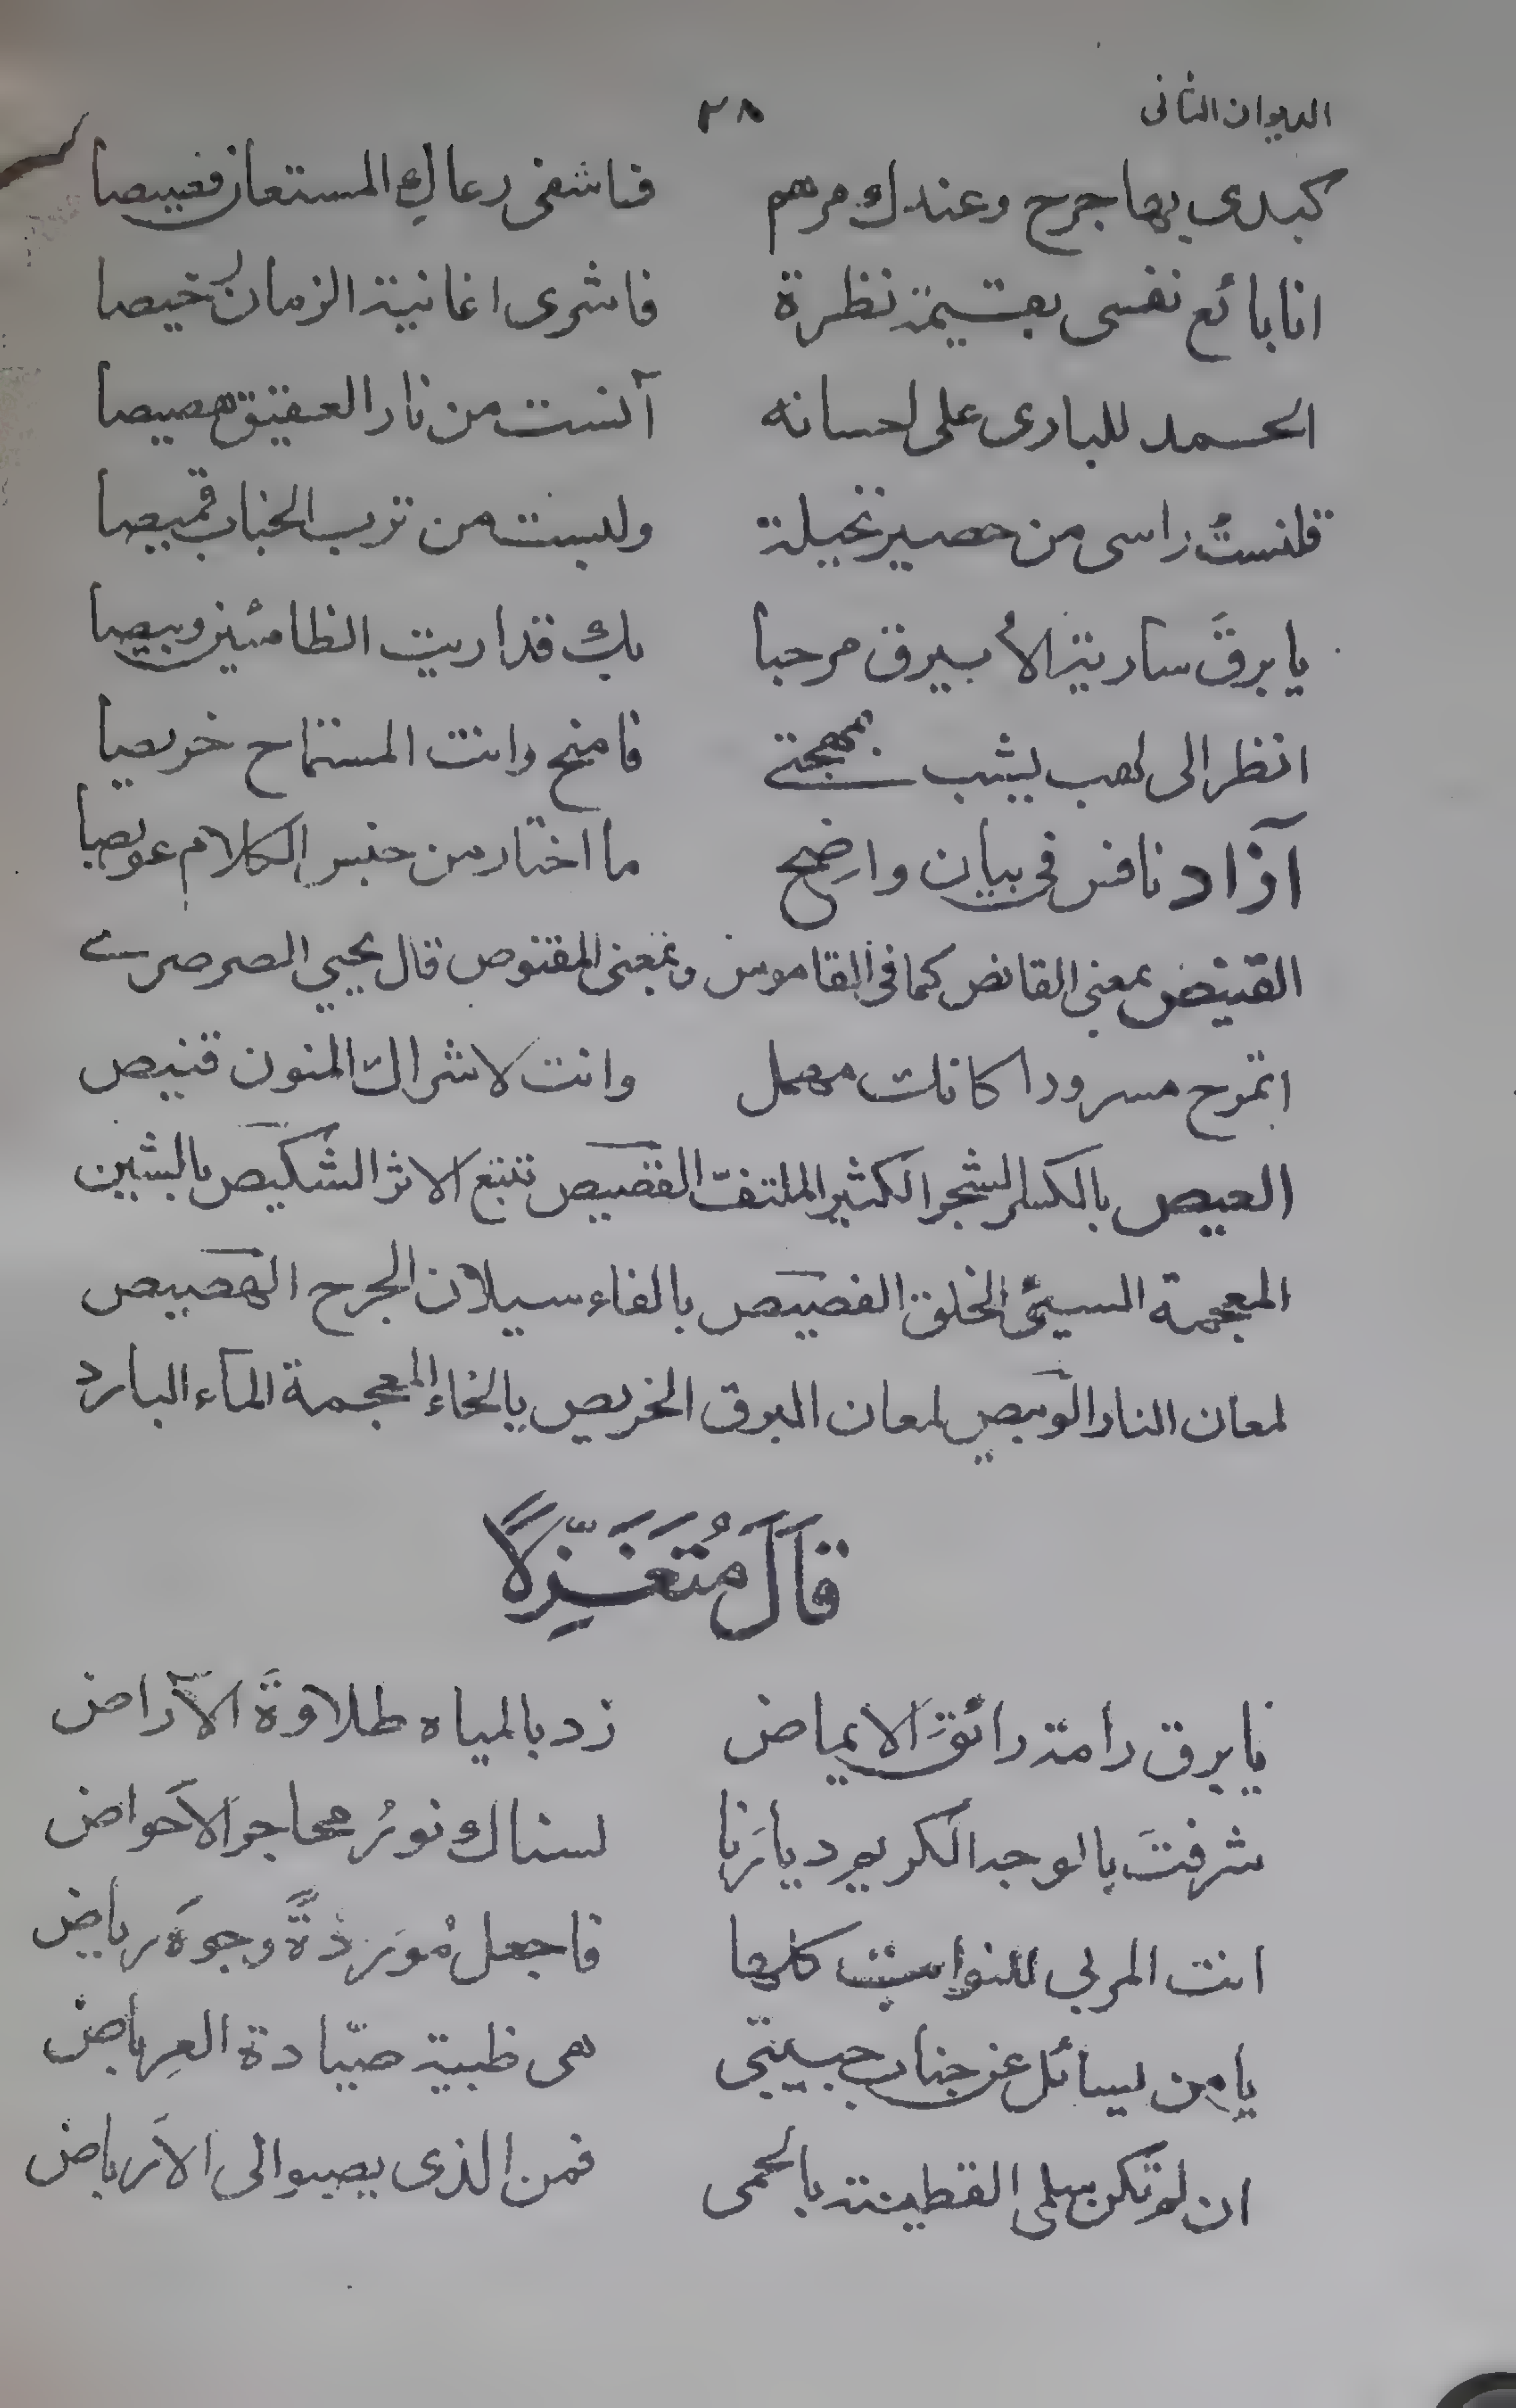 الديوان الثانى ٢٨
كبدى بها جرح وعندك مرهم فاشفى رعاك المستعان فصيصا
انا بائع نفسى بقيمة نظرة فاشرى اغانية الزمان رخيصا
الحمد للبارى على احسانه آنست من نار العقيق هصيصا
قلنستُ راسى من حصير نخيلة ولبست من ترب الجناب قميصا
يا برقَ سارية الأبيرق مرحبا بك قد اريت الظامئين وبيصا
انظر الى لهب يشب بمهجتى فامنح وانت المستماح خريصا
آزاد نافر فى بيان واضح ما اختار من جنس الكلام عويصا
القنيص بمعنى القانص كما فى القاموس وبمعنى المقنوص قال يحيى الصرصرى
اتمرح مسرورا كانك مهمل وانت لاشراك المنون قنيص
العيص بالكسر الشجر الكثير الملتفّ القصيص تتبع الاثر الشكيص بالشين
المعجمة السيئ الخلق الفصيص بالفاء سيلان الجرح الهصيص
لمعان النار الوبيص لمعان البرق الخريص بالخاء المعجمة الماء البارد
قَالَ مُتَغَزِّلًا
يا برق رامة رائقَ الايماض زد بالمياه طلاوةَ الآراض
شرفتَ بالوجه الكريم ديارَنا لسناك نورُ محاجر الاَحواض
انت المربى للنوابت كلها فاجعل مُورَّدةً وجوهَ رياض
يا من يسائل عن جناب حبيبتى هى ظبية صيّادة العِرباض
ان لم تكن سلمى القطينة بالحمى فمن الذى يصبو الى الاَرباض